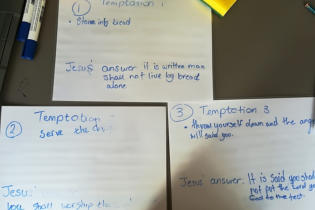 ① Temptation 1
• Stone into bread
Jesus' answer it is written man
shall not live by bread
alone
② Temptation
Serve the
Jesus'
you shall worship the
③ Temptation 3
• throw yourself down and the
will
Jesus answer. It is said you
not put the Lord
God to the test.